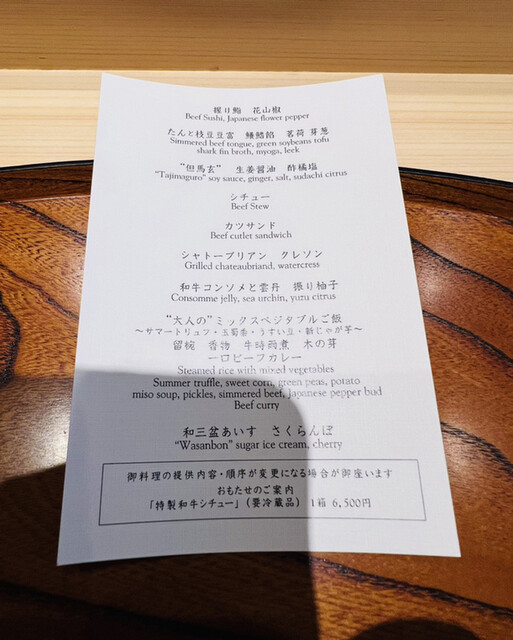 握り鮨　花山椒
Beef Sushi, Japanese flower pepper
たんと枝豆豆富　鱶鰭餡　茗荷 芽葱
Simmered beef tongue, green soybeans tofu
shark fin broth, myoga, leek
“但馬玄”　生姜醤油　酢橘塩
“Tajimaguro” soy sauce, ginger, salt, sudachi citrus
シチュー
Beef Stew
カツサンド
Beef cutlet sandwich
シャトーブリアン　クレソン
Grilled chateaubriand, watercress
和牛コンソメと雲丹　振り柚子
Consomme jelly, sea urchin, yuzu citrus
“大人の”ミックスベジタブルご飯
～サマートリュフ・玉蜀黍・うすい豆・新じゃが芋～
留椀　香物　牛時雨煮　木の芽
一口ビーフカレー
Steamed rice with mixed vegetables
Summer truffle, sweet corn, green peas, potato
miso soup, pickles, simmered beef, Japanese pepper bud
Beef curry
和三盆あいす　さくらんぼ
“Wasanbon” sugar ice cream, cherry
御料理の提供内容・順序が変更になる場合が御座います
おもたせのご案内
「特製和牛シチュー」（要冷蔵品）　1箱 6,500円